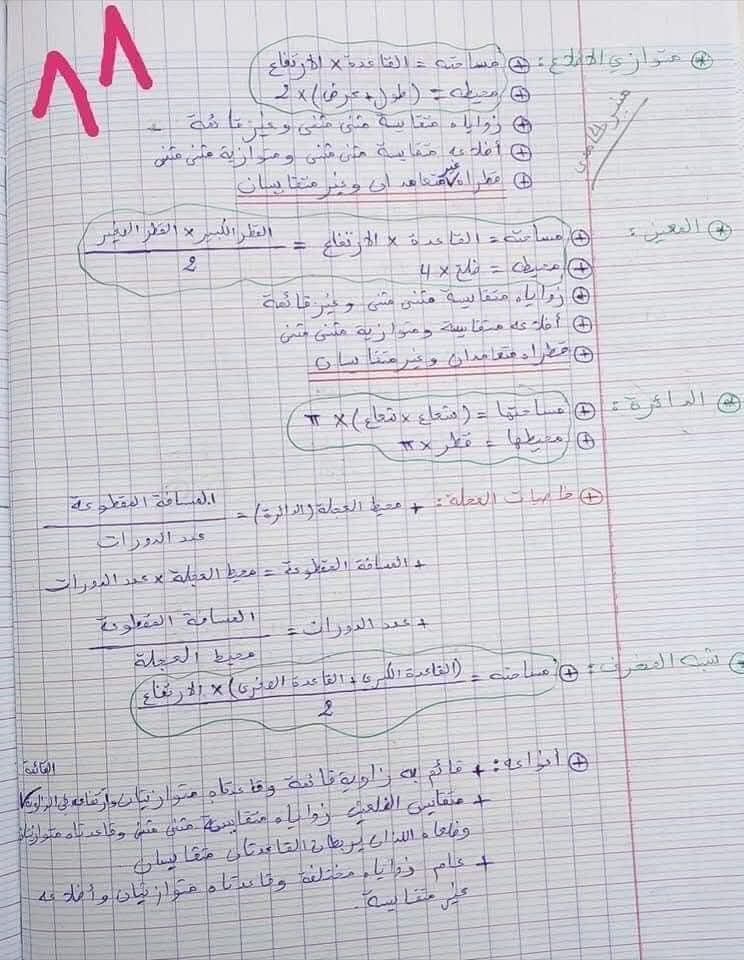 ٨٨
* متوازي الأضلاع: + مساحته = القاعدة × الارتفاع
+ محيطه = (طول + عرض) × 2
+ زواياه متقايسة مثنى مثنى وغير قائمة
+ أضلاعه متقايسة مثنى مثنى ومتوازية مثنى مثنى
+ قطراه غير متعامدان وغير متقايسان
* المعين: + مساحته = القاعدة × الارتفاع = القطر الكبير × القطر الصغير / 2
+ محيطه = ضلع × 4
+ زواياه متقايسة مثنى مثنى وغير قائمة
+ أضلاعه متقايسة ومتوازية مثنى مثنى
+ قطراه متعامدان وغير متقايسان
* الدائرة: + مساحتها = (شعاع × شعاع) × π
+ محيطها = قطر × π
+ خاصيات العجلة: + محيط العجلة (الدائرة) = المسافة المقطوعة / عدد الدورات
+ المسافة المقطوعة = محيط العجلة × عدد الدورات
+ عدد الدورات = المسافة المقطوعة / محيط العجلة
* شبه المنحرف: + مساحته = (القاعدة الكبرى + القاعدة الصغرى) × الارتفاع / 2
+ أنواعه: + قائم به زاوية قائمة وقاعدتاه متوازيتان وارتفاعه في الزاوية القائمة
+ متقايس الضلعين زواياه متقايسة مثنى مثنى وقاعدتاه متوازيتان
وضلعاه اللذان يربطان القاعدتان متقايسان
+ عام زواياه مختلفة وقاعدتاه متوازيتان وأضلاعه
غير متقايسة.